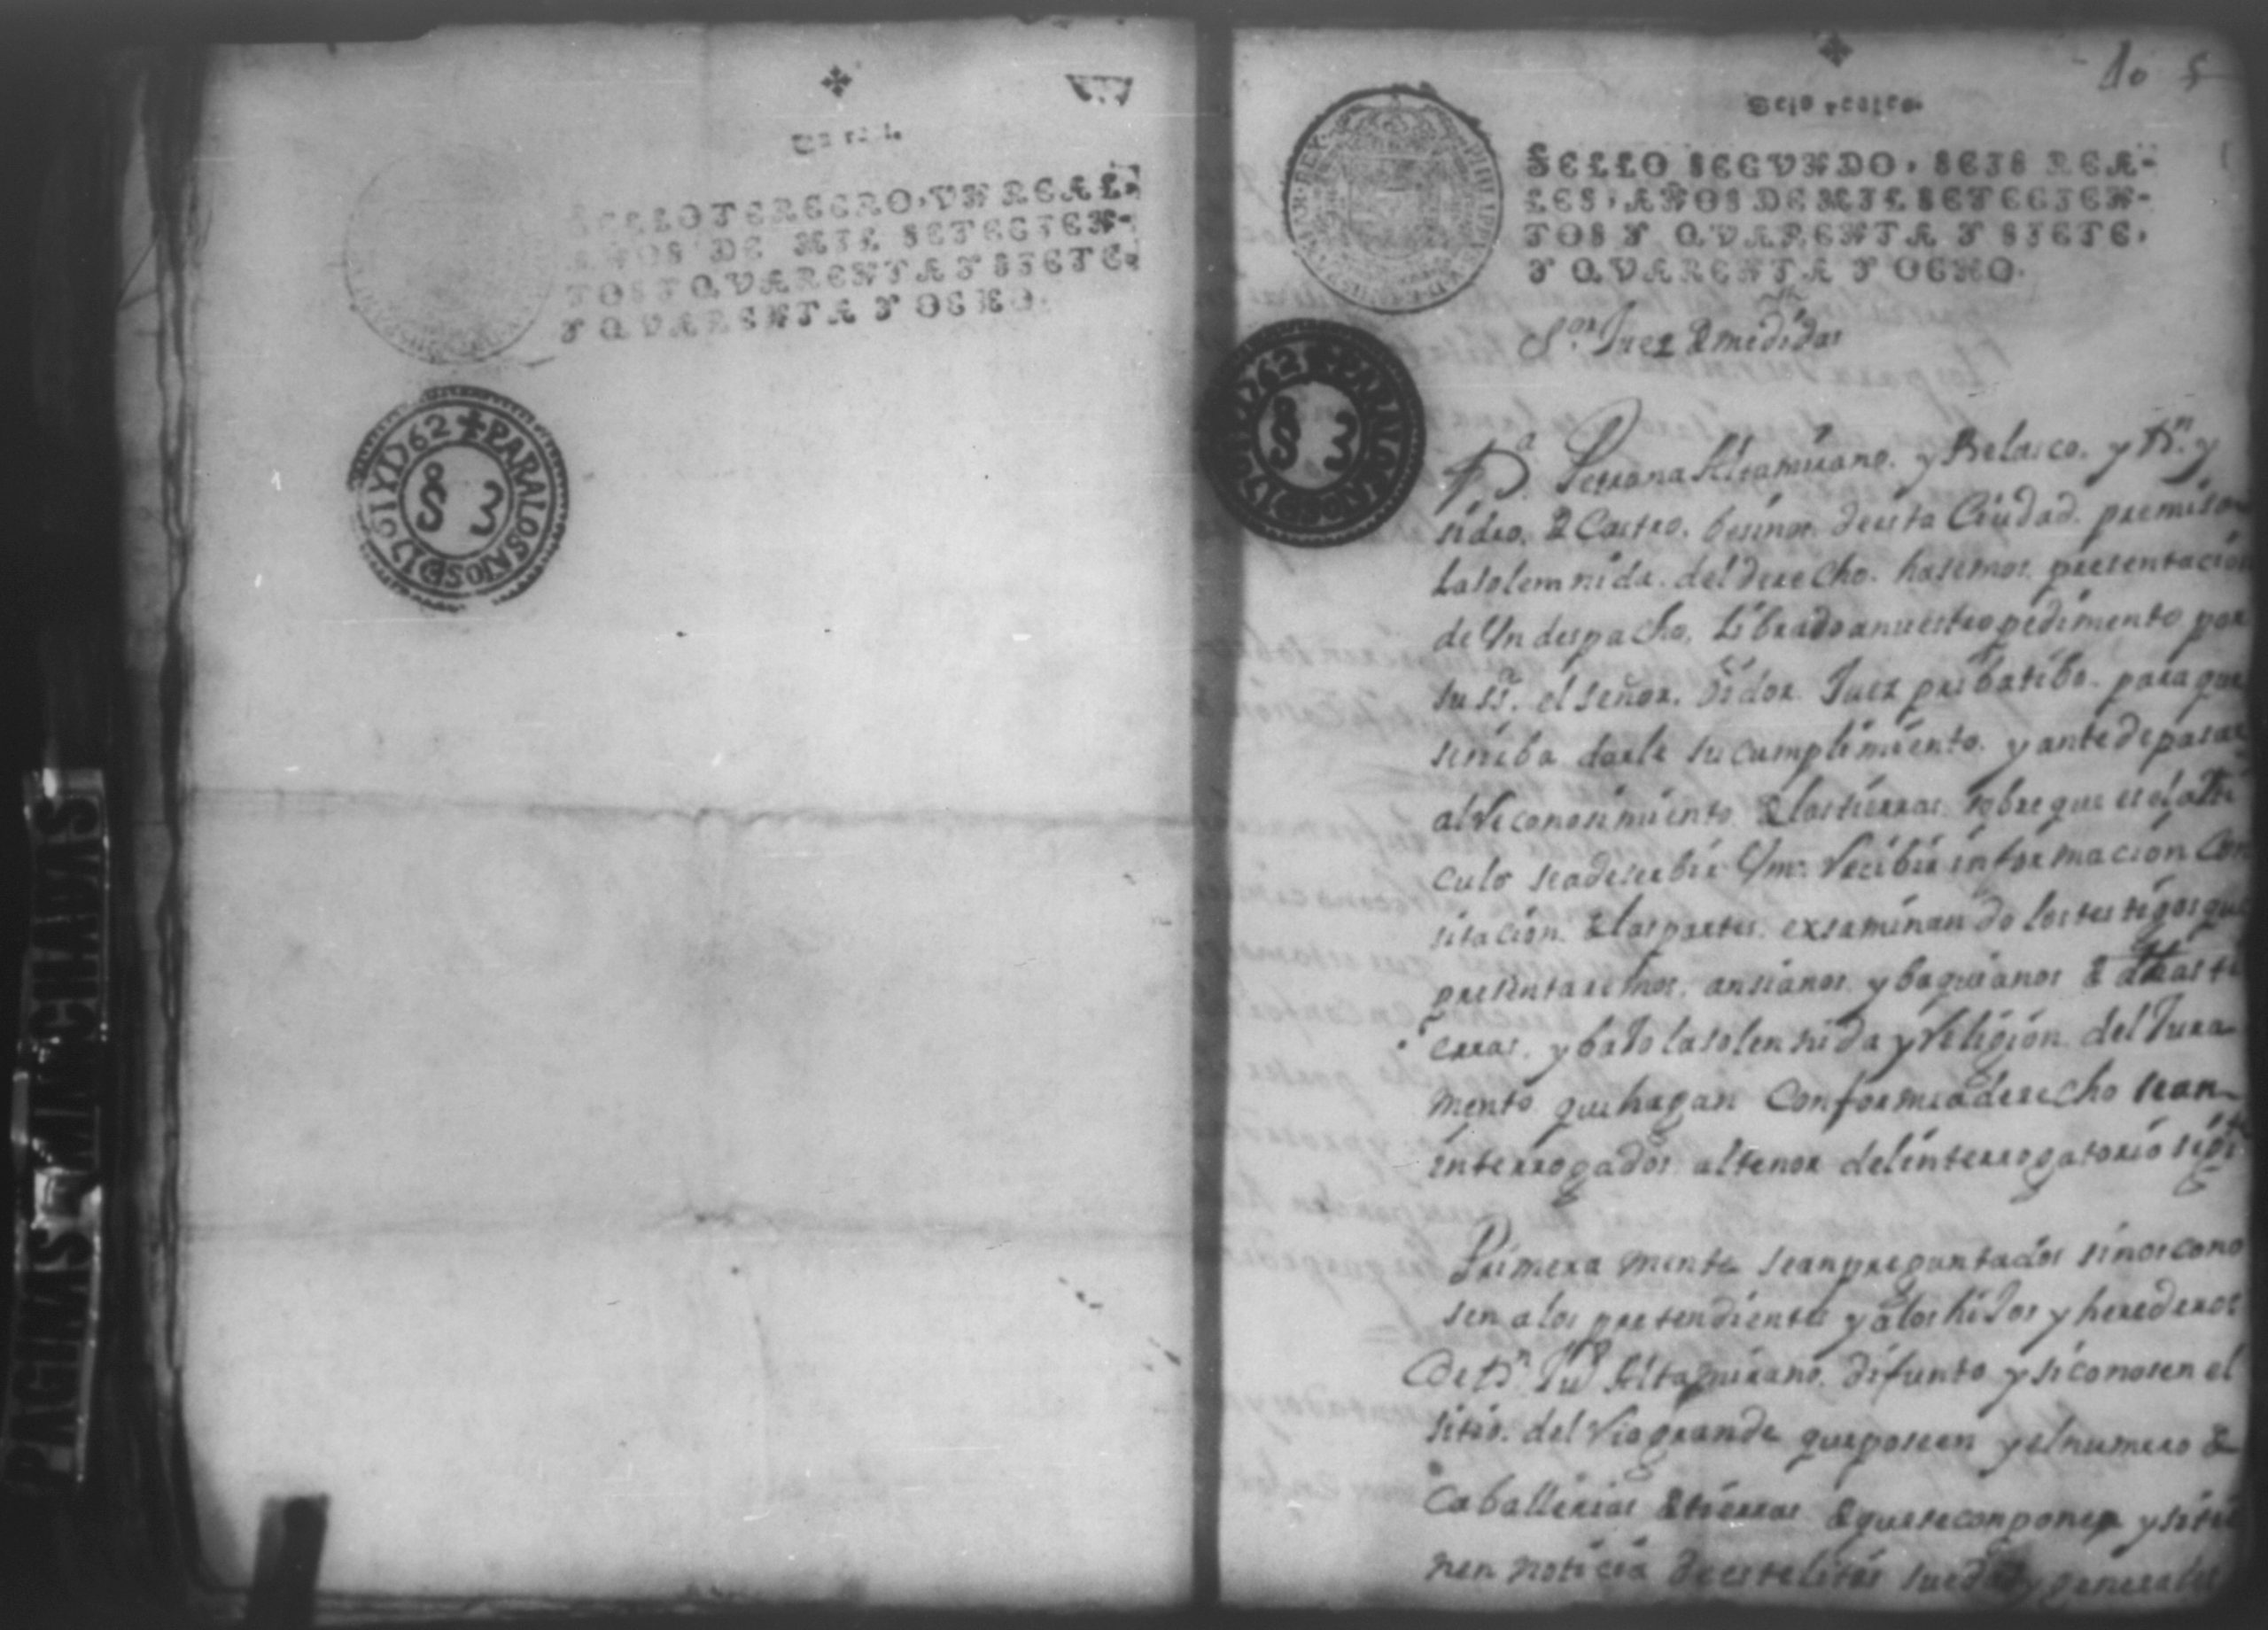 Un real.
SELLO TERCERO, VN REAL,
AÑOS DE MIL SETECIEN-
TOS Y QVARENTA Y SIETE,
Y QVARENTA Y OCHO.
PARA LOS AÑOS D 1761 Y D 62
S 3
PAGINAS MANCHADAS
do 5
Seis reales.
SELLO SEGVNDO, SEIS REA-
LES, AÑOS DE MIL SETECIEN-
TOS Y QVARENTA Y SIETE,
Y QVARENTA Y OCHO.
PARA LOS AÑOS D 1761 Y D 62
S 3
S.or Juez de medidas
D.a Petrona Altamirano. y Belasco. y D.n y
sidro. de Castro. besinos. de esta Ciudad. premisa
La solemnida. del derecho. hasemos presentacion
de Un despacho. Librado a nuestro pedimento por
su ss.a el señor. Oidor Juez pribatibo. para que
se siriba darle su cumplimiento. y ante de pasar
al Reconosimiento de las tierras sobre que es el arti
culo sea de serbir Vm. Recibir informacion Con
sitacion de las partes. exsaminando los testigos que
presentaremos. ansianos y baquianos de dhas ti
erras. y bajo la solemnida y Religion del Jura-
mento que hagan Conforme a derecho sean
interrogados al tenor del interrogatorio sigte
Primera mente sean preguntados si nos cono
sen a los pretendientes y a los hijos y herederos
De D.n Ju.o Altamirano. difunto y si conosen el
sitio. del Rio grande que poseen y el numero de
Caballerias de tierras de que se componen y si tie
nen noticia de este litis su edad y generales